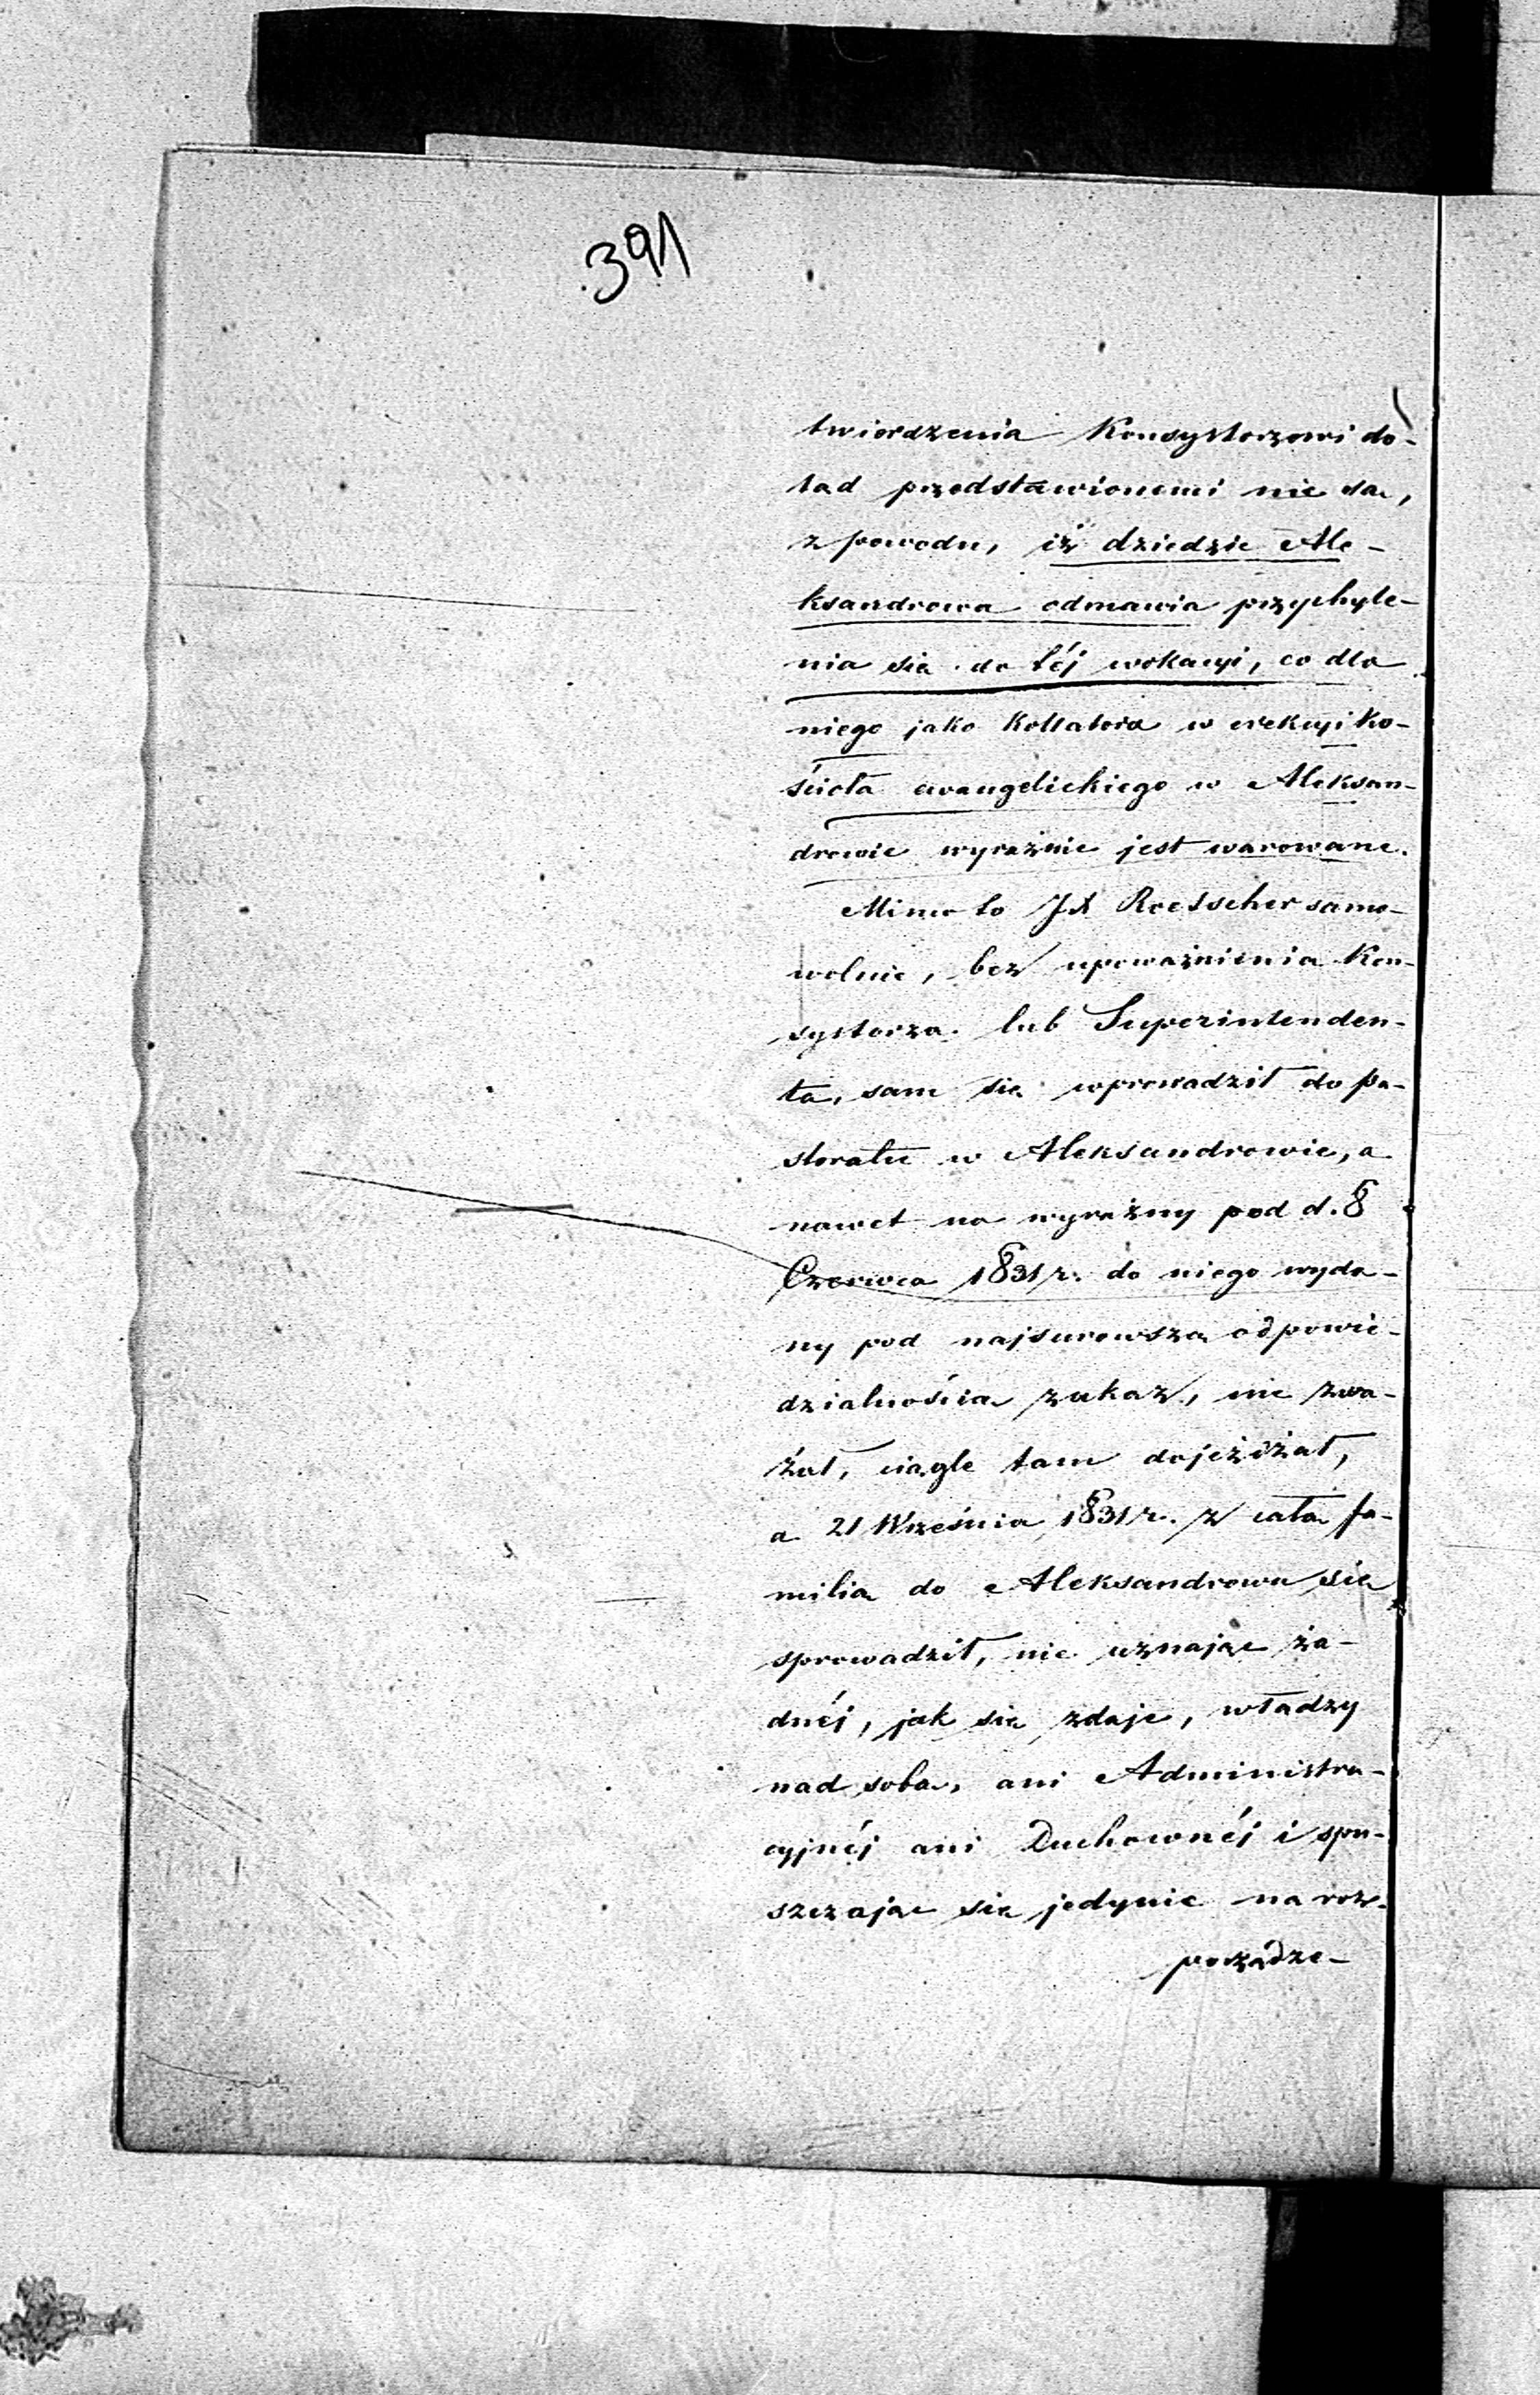 391
twierdzenia Konsystorzowi do-
tąd przedstawionemi nie są,
z powodu, iż dziedzic Ale-
ksandrowa odmawia przychyle-
nia się do téj wokacyi, co dla
niego jako Kollatora w erekcyi Ko-
ścioła ewangelickiego w Aleksan-
drowie wyraźnie jest warowane.
Mimo to JX Roetscher samo-
wolnie, bez upoważnienia Kon-
systorza lub Superintenden-
ta, sam się wprowadził do pa-
storatu w Aleksandrowie, a
nawet na wyraźny pod d. 8
Czerwca 1831 r. do niego wyda-
ny pod najsurowszą odpowie-
dzialnością zakaz, nie zwa-
żał, ciągle tam dojeżdżał,
a 21 Września 1831 r. z całą fa-
milią do Aleksandrowa się
sprowadził, nie uznając ża-
dnéj, jak się zdaje, władzy
nad sobą, ani Administra-
cyjnéj ani Duchownéj i spu-
szczając się jedynie na roz-
porządze-